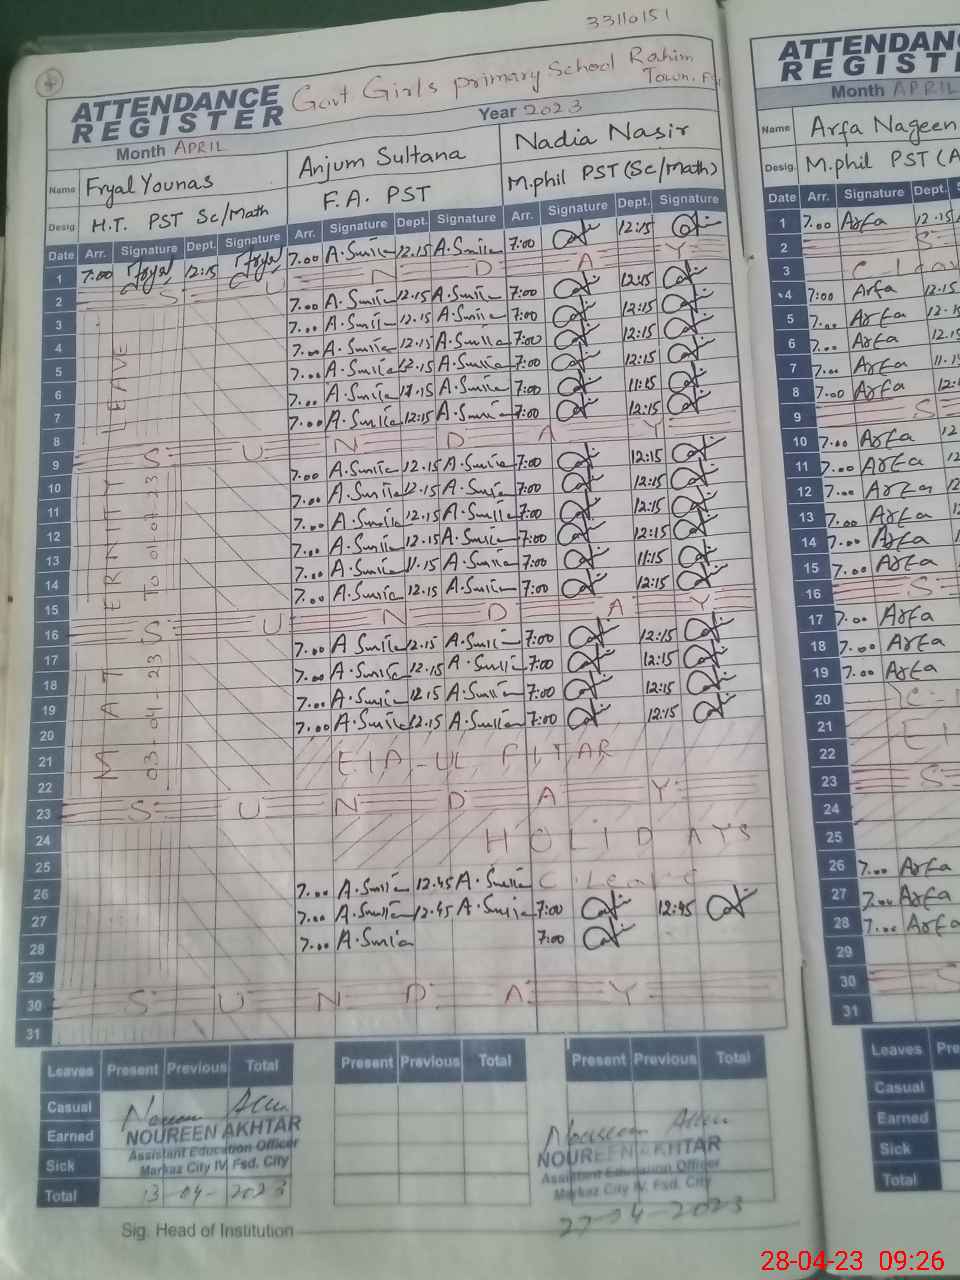 33110151
4
ATTENDANCE REGISTER
Govt Girls primary School Rahim Town. Fsd
Month APRIL Year 2023
Name Fryal Younas Anjum Sultana Nadia Nasir
Desig. H.T. PST Sc/Math F.A. PST M.phil PST (Sc/Math)
Date Arr. Signature Dept. Signature Arr. Signature Dept. Signature Arr. Signature Dept. Signature
1 7:00 Fryal 12:15 Fryal 7.00 12.15 7:00 12:15
2 S U N D A Y
3 7.00 12.15 7:00 12:15
4 7.00 12.15 7:00 12:15
5 7.00 12.15 7:00 12:15
6 7.00 12.15 7:00 12:15
7 7.00 11.15 7:00 11:15
8 7.00 12.15 7:00 12:15
9 S U N D A Y
10 7.00 12.15 7:00 12:15
11 7.00 12.15 7:00 12:15
12 7.00 12.15 7:00 12:15
13 7.00 12.15 7:00 12:15
14 7.00 11.15 7:00 11:15
15 7.00 12.15 7:00 12:15
16 S U N D A Y
17 7.00 12.15 7:00 12:15
18 7.00 12.15 7:00 12:15
19 7.00 12.15 7:00 12:15
20 7.00 12.15 7:00 12:15
21 EIA-UL FITAR
22
23 S U N D A Y
24 HOLIDAYS
25
26 7.00 12.45 C. Leave
27 7.00 12.45 7:00 12:45
28 7.00 7:00
29
30 S U N D A Y
31
MATERNITY LEAVE
03-04-23 To 01-07-23
Leaves Present Previous Total Present Previous Total Present Previous Total
Casual
Earned
Sick
Total
NOUREEN AKHTAR
Assistant Education Officer
Markaz City IV, Fsd. City
13-04-2023
NOUREEN AKHTAR
Assistant Education Officer
Markaz City IV, Fsd. City
27-04-2023
Sig. Head of Institution
ATTENDANC
REGIST
Month APRIL
Name Arfa Nageen
Desig. M.phil PST (A
Date Arr. Signature Dept. S
1 7.00 Arfa 12.15
2 S
3 C. Leav
4 7:00 Arfa 12.15
5 7.00 Arfa 12.15
6 7.00 Arfa 12.15
7 7.00 Arfa 11.15
8 7.00 Arfa 12.
9 S
10 7.00 Arfa 12
11 7.00 Arfa 12
12 7.00 Arfa 12
13 7.00 Arfa 12
14 7.00 Arfa
15 7.00 Arfa
16 S
17 7.00 Arfa
18 7.00 Arfa
19 7.00 Arfa
20 C.
21 EI
22
23 S
24
25
26 7.00 Arfa
27 7.00 Arfa
28 7.00 Arfa
29
30 S
31
Leaves Pre
Casual
Earned
Sick
Total
28-04-23 09:26